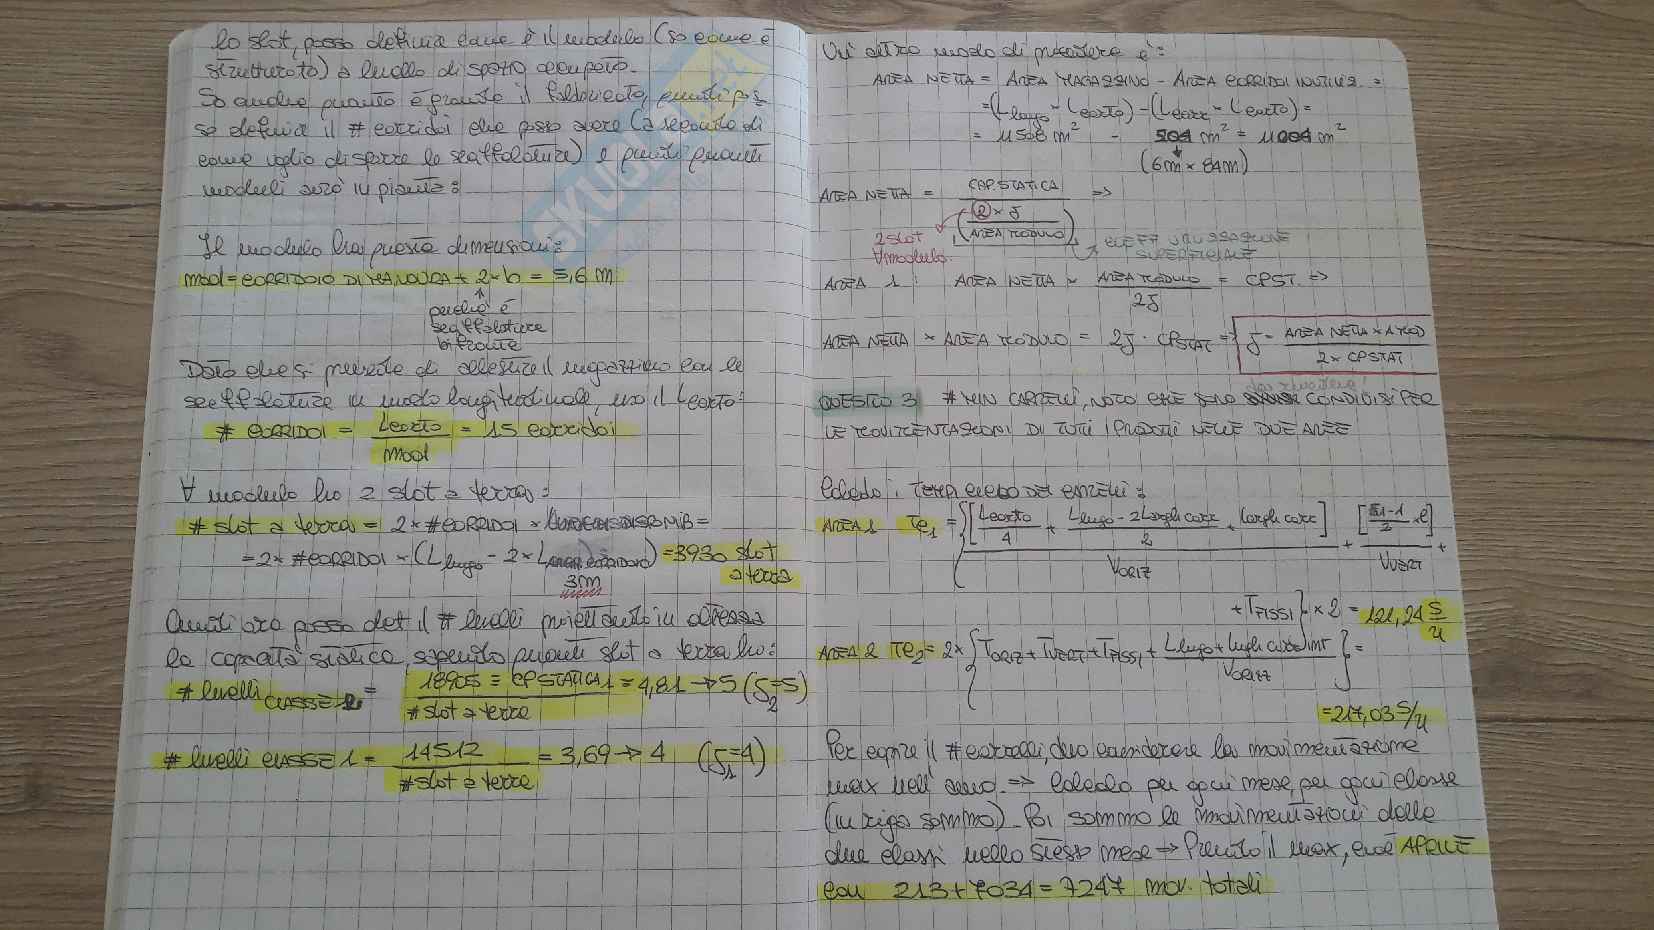 lo slot, posso definire come è il modulo (so come è
strutturato) a livello di spazio occupato.
So anche quanto è grande il fabbricato, quindi pos
so definire il # corridoi che posso avere (a seconda di
come voglio disporre le scaffalature) e quindi quanti
moduli avrò in pianta:
Il modulo ha queste dimensioni:
mod = CORRIDOIO DI MANOVRA + 2×b = 5,6 m
perché è
scaffalatura
bifronte
Dato che si prevede di allestire il magazzino con le
scaffalature in modo longitudinale, uso il Lcorto:
# CORRIDOI = Lcorto / mod = 15 corridoi
∀ modulo ho 2 slot a terra:
# slot a terra = 2 × #CORRIDOI ×
= 2 × #CORRIDOI × (Llungo - 2 × L ) = 3930 slot
3m a terra
Quindi ora posso det il # livelli proiettando in altezza
la capacità statica, sapendo quanti slot a terra ho:
# livelli CLASSE 2 = 18905 = CPSTATICA1 / #slot a terra = 4,81 → 5 (S2=5)
# livelli CLASSE 1 = 14512 / #slot a terra = 3,69 → 4 (S1=4)
SKUOLA.net
Un altro modo di procedere è:
AREA NETTA = AREA MAGAZZINO - AREA CORRIDOI INUTILIZ. =
= (Llungo × Lcorto) - (Lcorr × Lcorto) =
= 11508 m² - 504 m² = 11004 m²
(6m × 84m)
AREA NETTA = CAP. STATICA / (2 × J / AREA MODULO) =>
2 slot
∀ modulo
COEFF UTILIZZAZIONE
SUPERFICIALE
AREA 1: AREA NETTA × AREA MODULO / 2J = CPST. =>
AREA NETTA × AREA MODULO = 2J · CPSTAT => J = AREA NETTA × A MOD / 2 × CPSTAT
QUESITO 3 # MIN CARRELLI, NOTO CHE SONO CONDIVISI PER
LE MOVIMENTAZIONI DI TUTTI I PRODOTTI NELLE DUE AREE
Calcolo i TEMPI CICLO DEI CARRELLI:
AREA 1 Tc1 = {[Lcorto/4 + Llungo - 2Largh corr/2 + largh corr] / VORIZ + [S1-1/2 × e] / VVERT +
+ TFISSI} × 2 = 121,24 s/u
AREA 2 Tc2 = 2 × {TORIZ + TVERT + TFISSI + Llungo + largh corr INT / VORIZZ} =
= 217,03 s/u
Per capire il # carrelli, devo considerare la movimentazione
max nell'anno. => Calcolo per ogni mese, per ogni classe
(in riga sommo). Poi sommo le movimentazioni delle
due classi nello stesso mese → Prendo il max, cioè APRILE
con 213 + 7034 = 7247 mov. totali